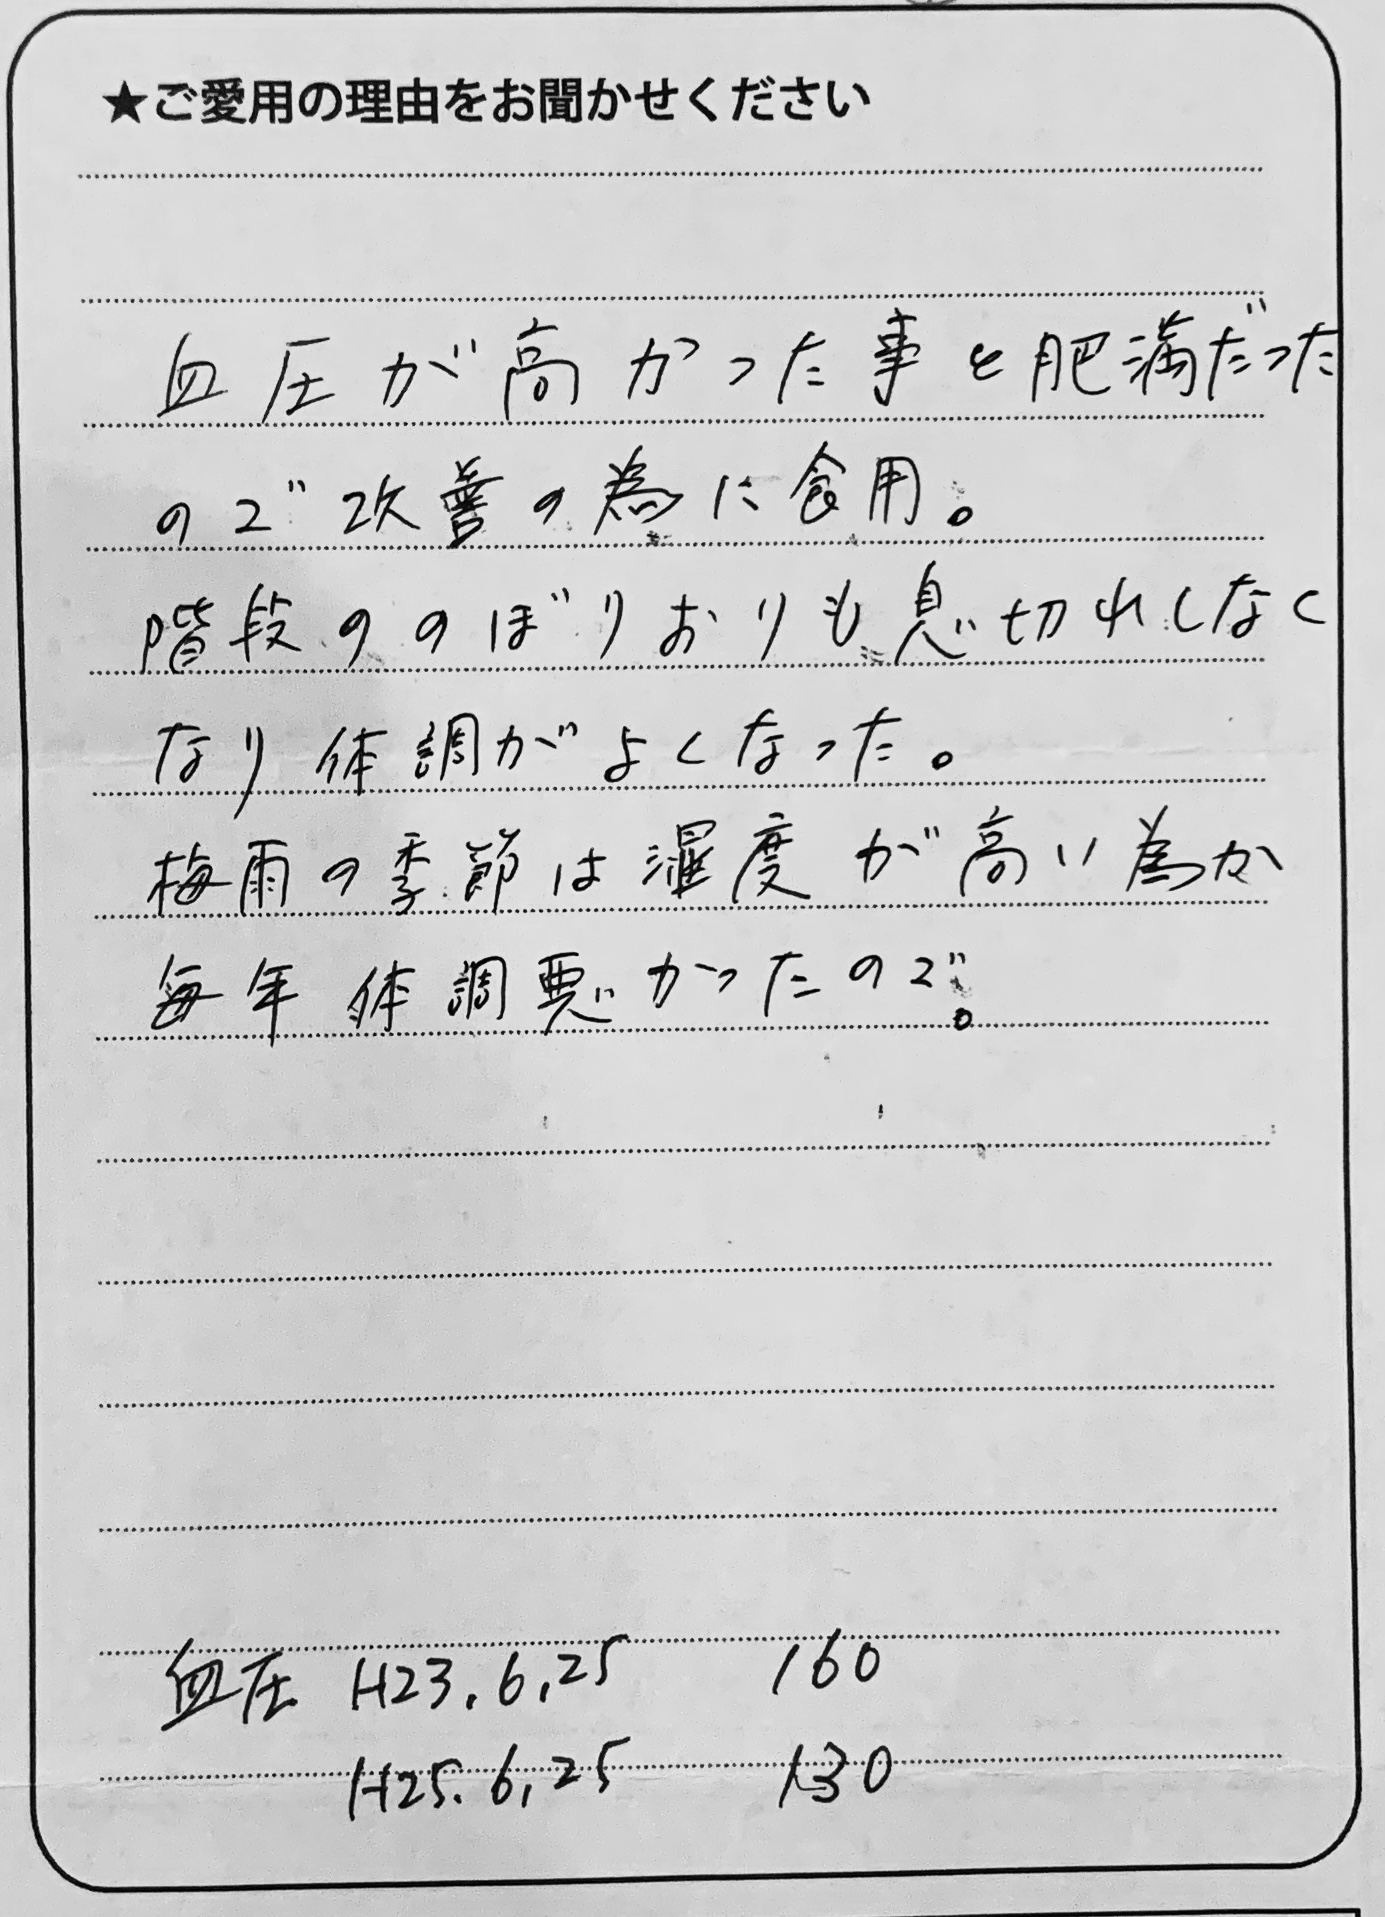 ★ご愛用の理由をお聞かせください
血圧が高かった事と肥満だった
ので改善の為に食用。
階段ののぼりおりも息切れしなく
なり体調がよくなった。
梅雨の季節は湿度が高い為か
毎年体調悪かったので。
血圧 H23.6,25 160
H25.6,25 130